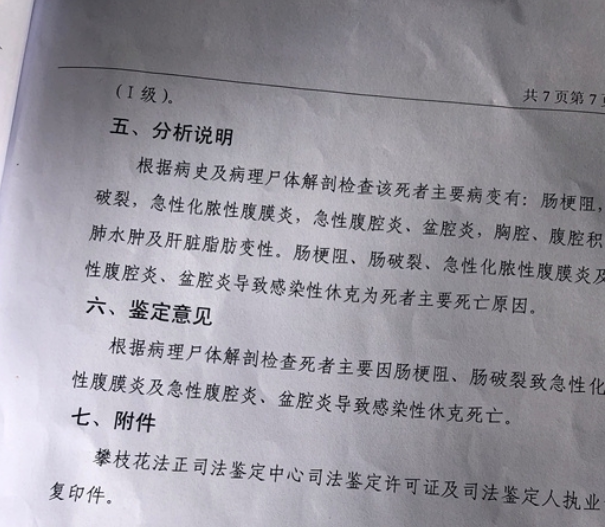 共7页第7页
(I级)。
五、分析说明
根据病史及病理尸体解剖检查该死者主要病变有：肠梗阻，
破裂，急性化脓性腹膜炎，急性腹腔炎、盆腔炎，胸腔、腹腔积
肺水肿及肝脏脂肪变性。肠梗阻、肠破裂、急性化脓性腹膜炎及
性腹腔炎、盆腔炎导致感染性休克为死者主要死亡原因。
六、鉴定意见
根据病理尸体解剖检查死者主要因肠梗阻、肠破裂致急性化
性腹膜炎及急性腹腔炎、盆腔炎导致感染性休克死亡。
七、附件
攀枝花法正司法鉴定中心司法鉴定许可证及司法鉴定人执业
复印件。